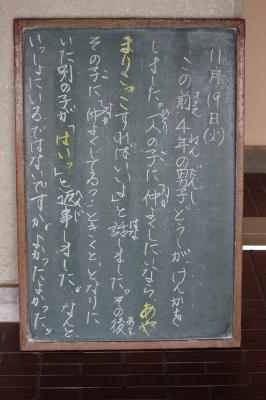 11月19日(火)
この前、4年の男子どうしが、けんかを
しました。一人の子に「仲よくしたいなら、あや
まりっこすればいいよ」と話しました。その後
その子に「仲よくしてるっ?」ときくと、となりに
いた別の子が「はいっ」と返事しました。なんと
いっしょにいるではないですか。よかったよかったっ